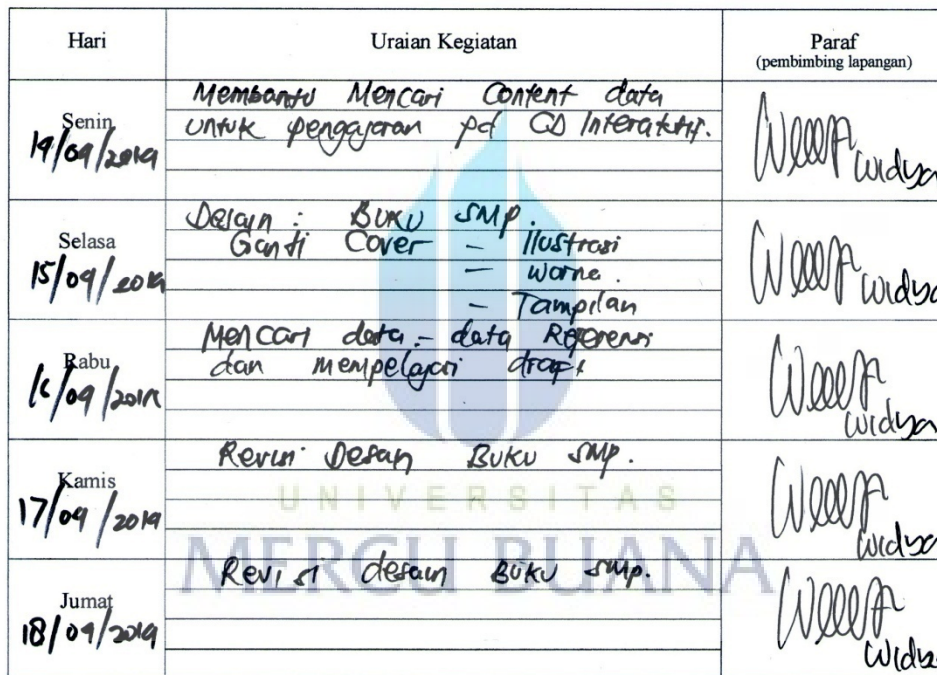 Hari
Uraian Kegiatan
Paraf
(pembimbing lapangan)
Senin
14/04/2014
Membantu Mencari Content data
untuk pengajaran pd CD Interaktif.
Widya
Selasa
15/04/2014
Desain : BUKU SMP.
Ganti Cover - Ilustrasi
- warna.
- Tampilan
Widya
Rabu
16/04/2014
Mencari data - data Referensi
dan mempelajari draft
Widya
Kamis
17/04/2014
Revisi Desain BUKU SMP.
Widya
UNIVERSITAS
MERCU BUANA
Jumat
18/04/2014
Revisi desain BUKU SMP.
Widya